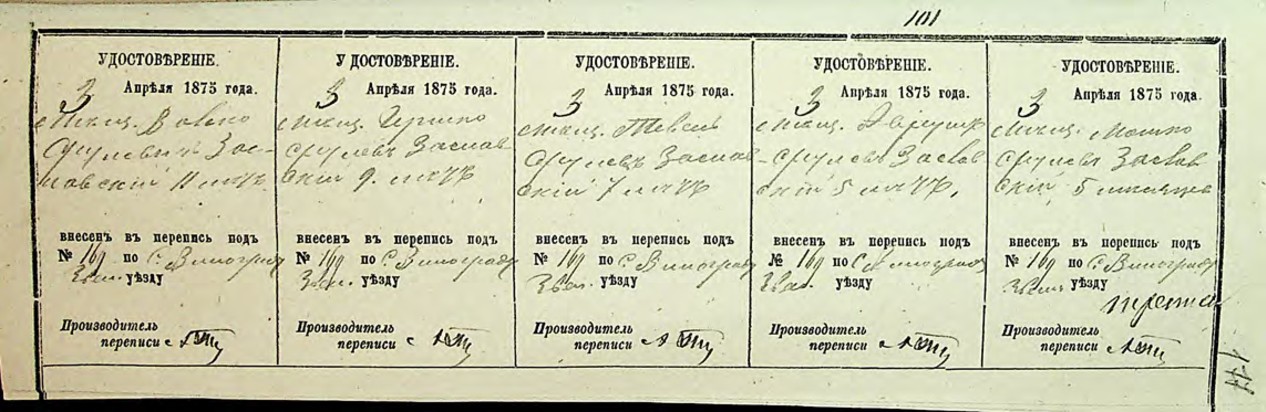 101
УДОСТОВѢРЕНІЕ.
3 Апрѣля 1875 года.
Мѣщ. Вовко
Заславскій 11 лѣтъ
внесенъ въ перепись подъ
№ 169 по с. Винограду
Звен. уѣзду
Производитель
переписи
УДОСТОВѢРЕНІЕ.
3 Апрѣля 1875 года.
Мѣщ. Гершко
Срулевъ Заслав
скій 9 лѣтъ
внесенъ въ перепись подъ
№ 169 по с. Винограду
Звен. уѣзду
Производитель
переписи
УДОСТОВѢРЕНІЕ.
3 Апрѣля 1875 года.
Мѣщ.
Срулевъ Заслав
скій 7 лѣтъ
внесенъ въ перепись подъ
№ 169 по с. Винограду
Звен. уѣзду
Производитель
переписи
УДОСТОВѢРЕНІЕ.
3 Апрѣля 1875 года.
Мѣщ.
Срулевъ Заслав
скій 5 лѣтъ,
внесенъ въ перепись подъ
№ 169 по с. Винограду
Звен. уѣзду
Производитель
переписи
УДОСТОВѢРЕНІЕ.
3 Апрѣля 1875 года.
Мѣщ. Мошко
Срулевъ Заслав
скій 5
внесенъ въ перепись подъ
№ 169 по с. Винограду
Звен. уѣзду
Производитель
переписи